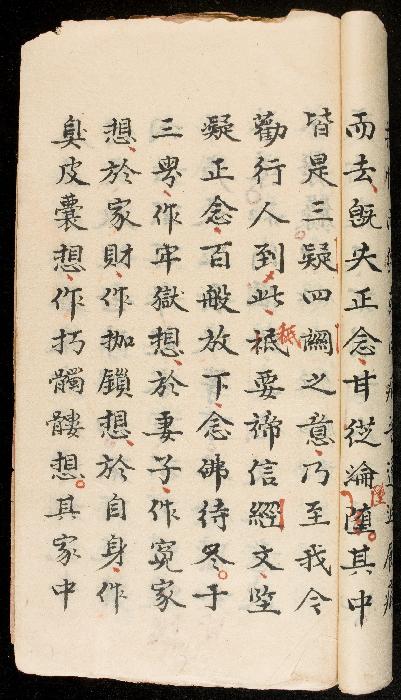 而去旣失正念甘從淪墮其中
皆是三疑四𨵿之意乃至我今
勸行人到此秪要諦信經文堅
凝正念百般放下念佛待冬于
三界作牢獄想於妻子作冤家
想於家財作枷鎖想於自身作
臭皮囊想作朽髑髏想具家中
秪
墮